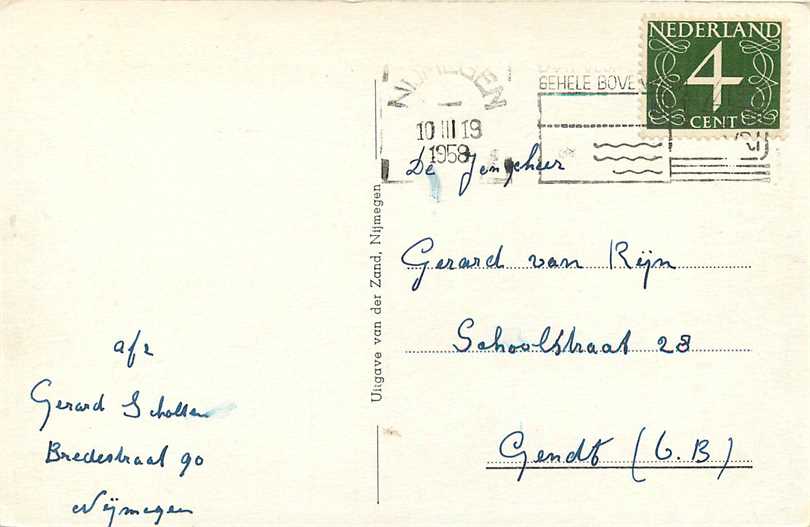 NEDERLAND
4
CENT
NIJMEGEN
10 III 19
1958
GEHELE BOVE
De Jongeheer
Gerard van Rijn
Schoolstraat 28
Gendt (G.B)
Uitgave van der Zand, Nijmegen
afz
Gerard Scholten
Bredestraat 90
Nijmegen